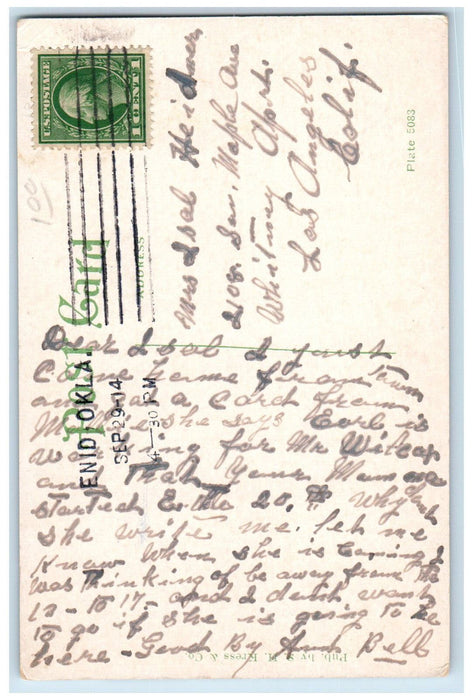 U.S. POSTAGE
1 CENT 1
1.00
Post Card
ADDRESS
ENID, OKLA.
SEP 29-14
4-30 PM
Mrs Isal Heidner
2108. San, Maple Ave
Whitney Aprt.
Los Angeles
Calif.
Plate 5083
Dear Isal I just
Came home from town
and had a Card from
she says Earl is
working for Mr
and that your Mamma
started 20.th Why
she write me. let me
Know When she is Coming I
was thinking of be away from the
12- to 17. and I dont want
to go if she is going to be
here - Good By Aunt Bell
Pub. by S. H. Kress & Co.